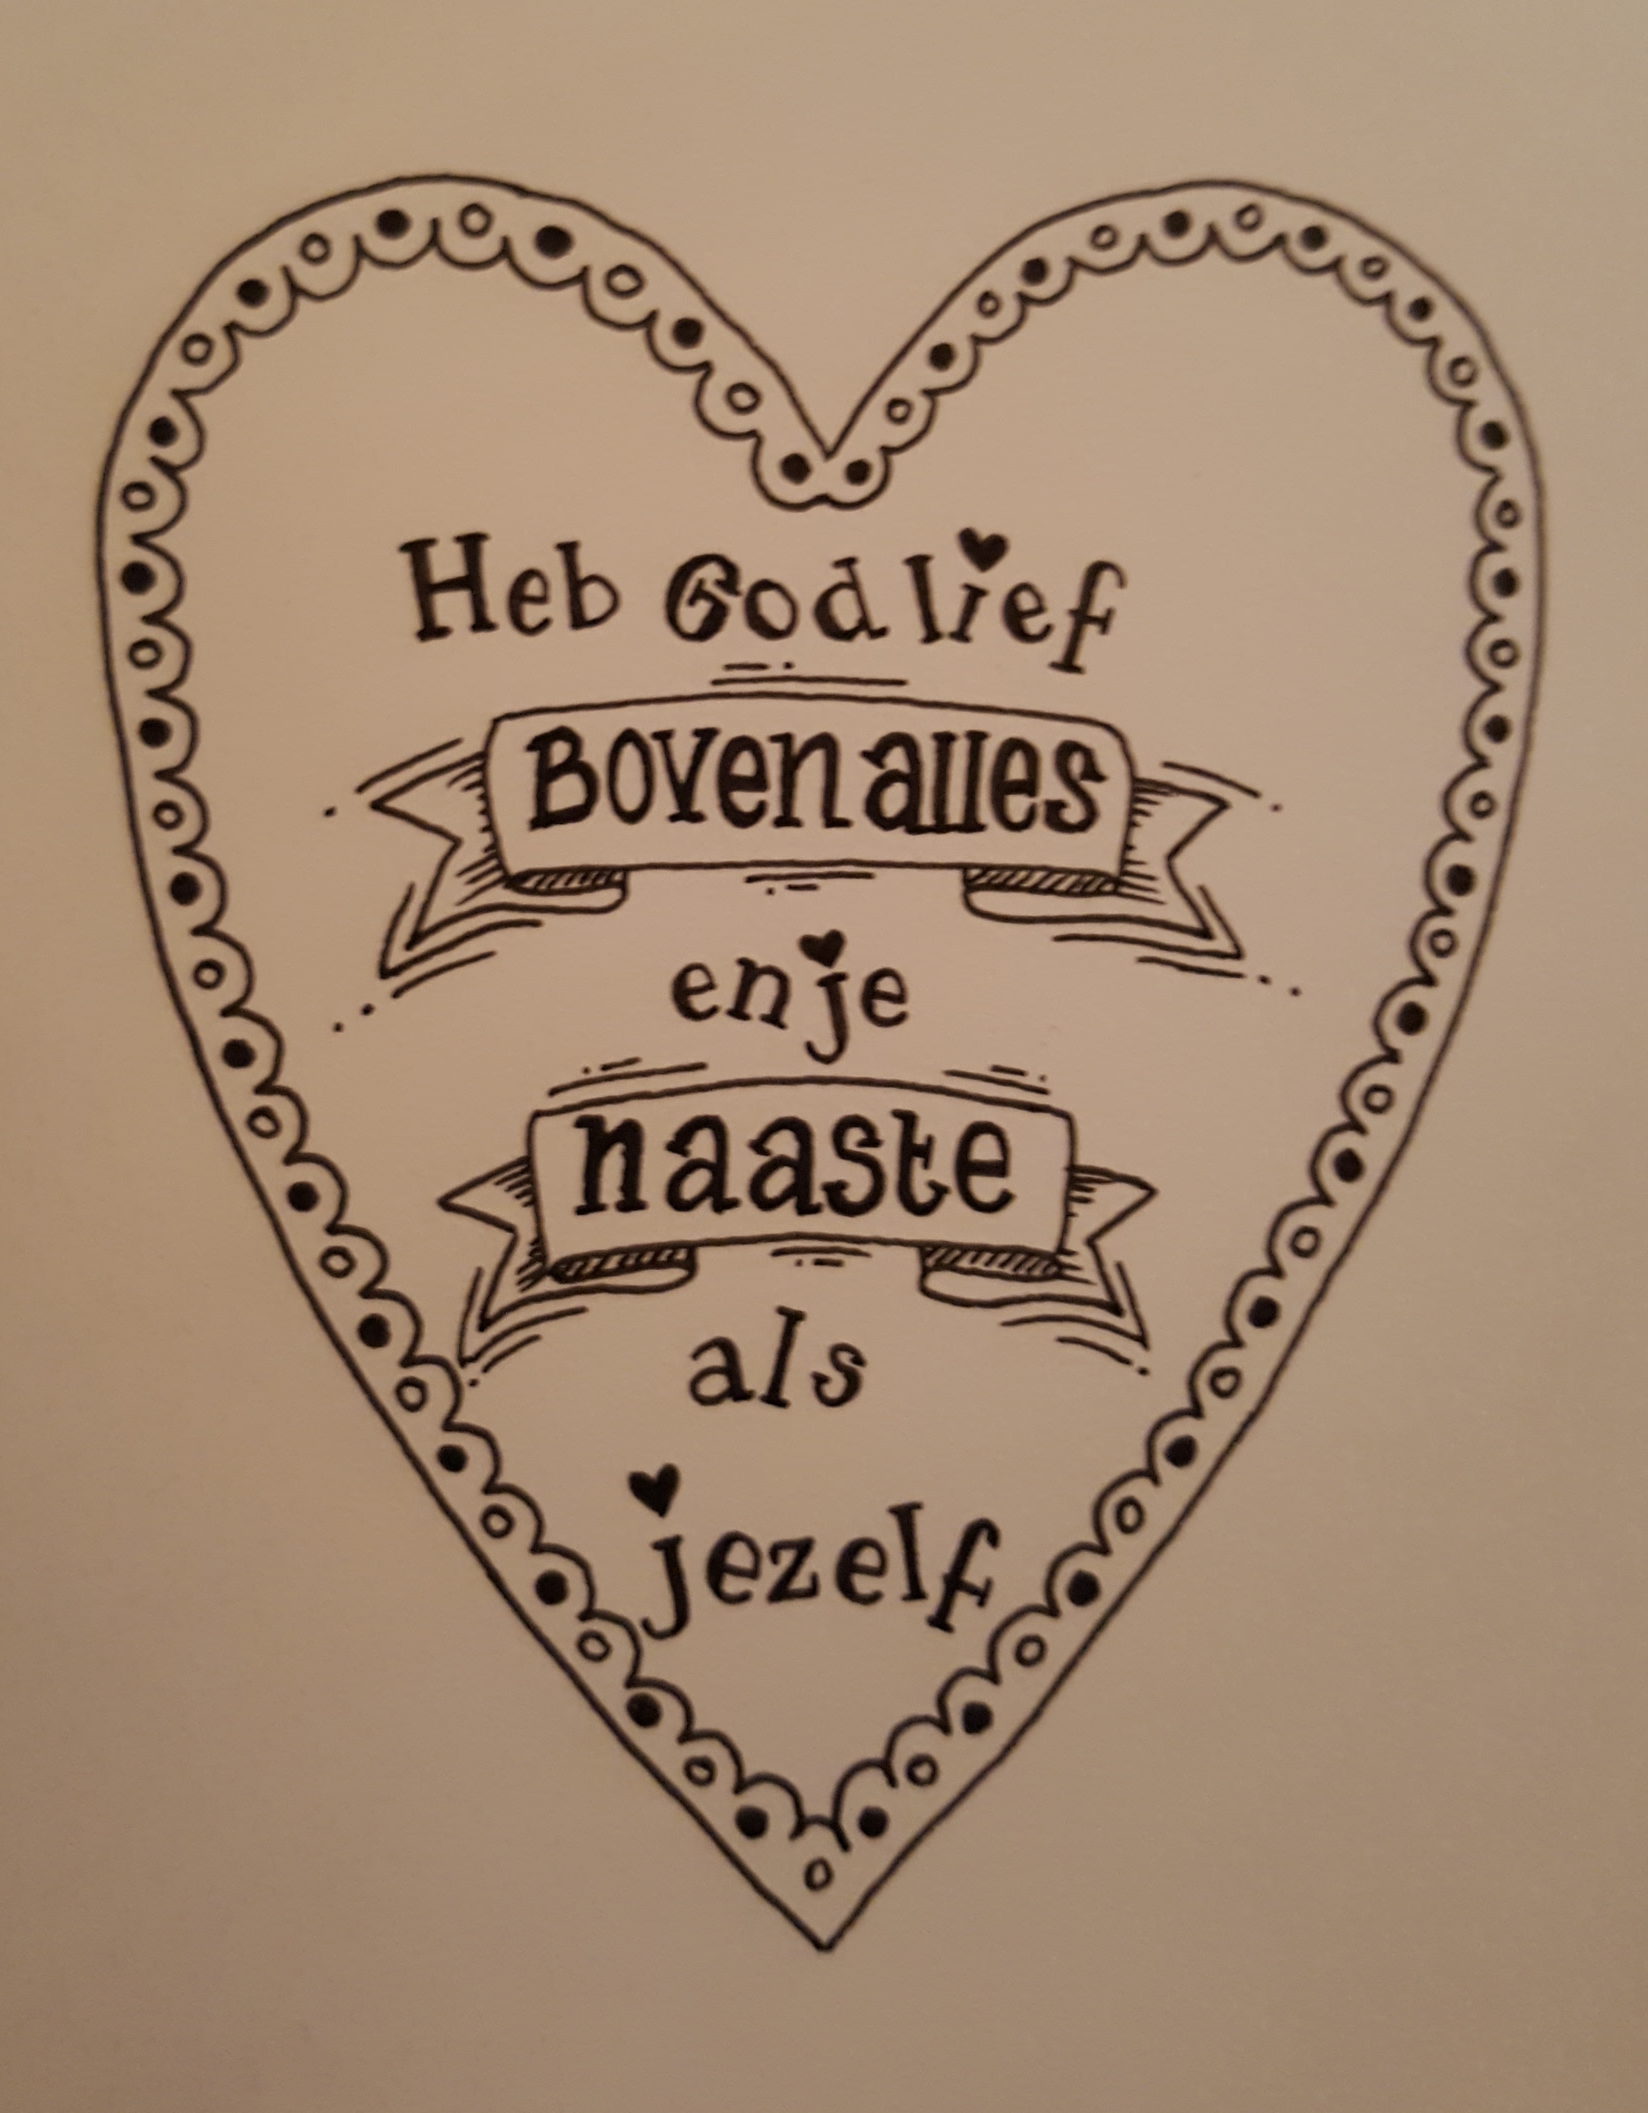 Heb God lief
Boven alles
en je
naaste
als
jezelf